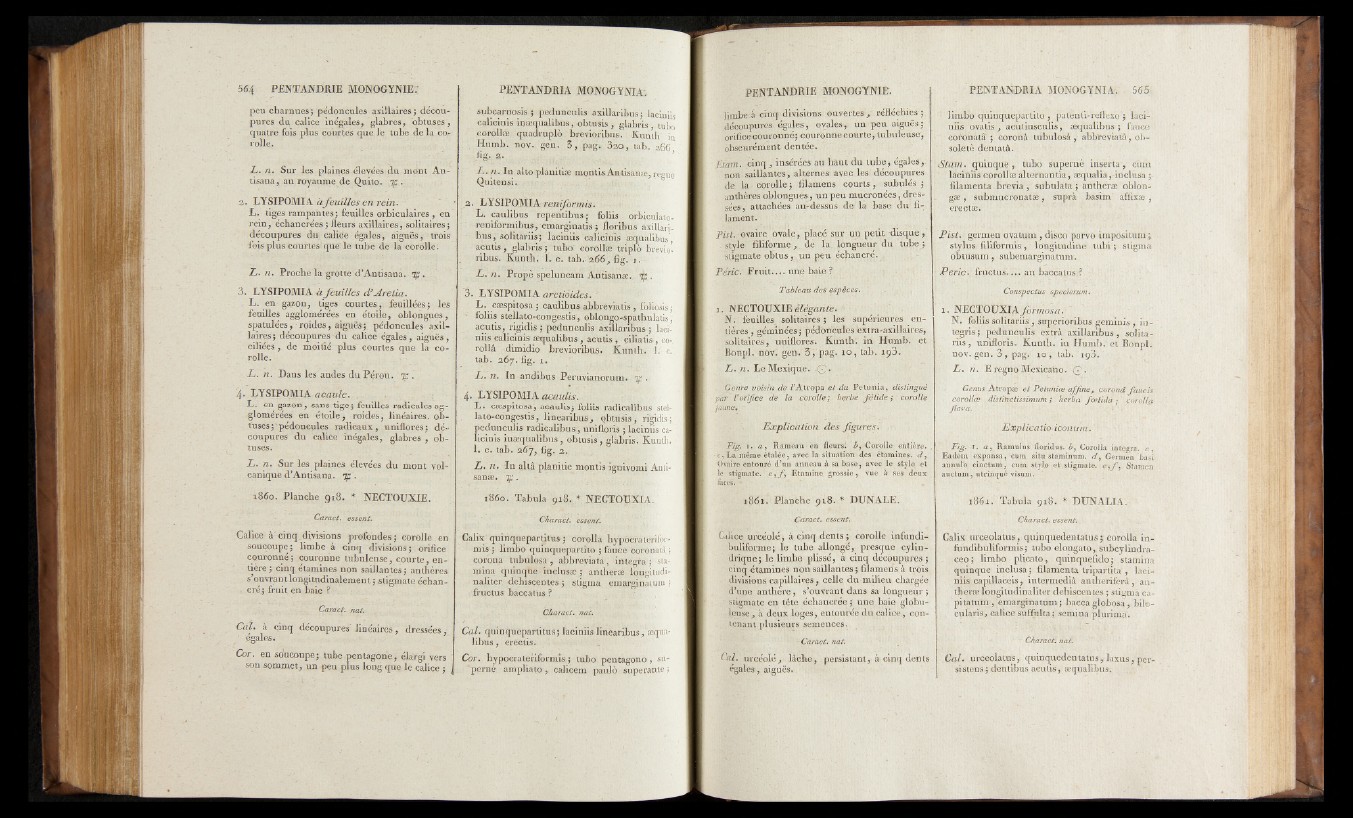 564 PENTANDRIE MONOGYNIE.
peu charnues; pédoncules axillaires; décou-
pures du calice inégales, glabres, obtuses,
quatre fois plus courtes que le tube de la co-
rolle.
L. n. Sur les plaines élevées du mont An-
tisana, au royaume de Quito. ♃.
2. LYSIPOMIA à feuilles en rein.
L. tiges rampantes; feuilles orbiculaires, en
rein, échancrées; fleurs axillaires, solitaires;
découpures du calice égales, aiguës, trois
fois plus courtes que le tube de la corolle.
L. n. Proche la grotte d'Antisana. ♃.
3. LYSIPOMIA à feuilles d'Aretia.
L. en gazon, tiges courtes, feuillées; les
feuilles agglomérées en étoile, oblongues,
spatulées, roides, aiguës; pédoncules axil-
laires; découpures du calice égales, aiguës,
ciliées, de moitié plus courtes que la co-
rolle.
L. n. Dans les andes du Pérou. ♃.
4. LYSIPOMIA acaule.
L. en gazon, sans tige; feuilles radicales ag-
glomérées en étoile, roides, linéaires, ob-
tuses; pédoncules radicaux, uniflores; dé-
coupures du calice inégales, glabres, ob-
tuses.
L. n. Sur les plaines élevées du mont vol-
canique d'Antisana. ♃.
1860. Planche 918. * NECTOUXIE.
Caract. essent.
Calice à cinq divisions profondes; corolle en
soucoupe; limbe à cinq divisions; orifice
couronné; couronne tubuleuse, courte, en-
tière; cinq étamines non saillantes; anthères
s'ouvrant longitudinalement; stigmate échan-
cré; fruit en baie?
Caract. nat.
Cal. à cinq découpures linéaires, dressées,
égales.
Cor. en soucoupe; tube pentagone, élargi vers
son sommet, un peu plus long que le calice;
PENTANDRIA MONOGYNIA.
subcarnosis; pedunculis axillaribus; laciniis
calicinis inæqualibus, obtusis, glabris, tubo
corollæ quadruplò brevioribus. Kunth in
Humb. nov. gen. 3, pag. 320, tab. 266,
fig. 2.
L. n. In alto planitiæ montis Antisanæ, regno
Quitensi.
2. LYSIPOMIA reniformis.
L. caulibus repentibus; foliis orbiculato-
reniformibus, emarginatis; floribus axillari-
bus, solitariis; laciniis calicinis æqualibus,
acutis, glabris; tubo corollæ triplò brevio-
ribus. Kunth. l. c. tab. 266, fig. 1.
L. n. Propè speluncam Antisanæ. ♃.
3. LYSIPOMIA arctioides.
L. cæspitosa; caulibus abbreviatis, foliosis;
foliis stellato-congestis, oblongo-spathulatis,
acutis, rigidis; pedunculis axillaribus; laci-
niis calicinis æqualibus, acutis, ciliatis, co-
rollâ dimidio brevioribus. Kunth. l. c.
tab. 267. fig. 1.
L. n. In andibus Peruvianorum. ♃.
4. LYSIPOMIA acaulis.
L. cæspitosa, acaulis; foliis radicalibus stel-
lato-congestis, linearibus, obtusis, rigidis;
pedunculis radicalibus, unifloris; laciniis ca-
licinis inæqualibus, obtusis, glabris. Kunth.
l. c. tab. 267, fig. 2.
L. n. In altâ planitie montis ignivomi Anti-
sanæ. ♃.
1860. Tabula 918. * NECTOUXIA.
Charact. essent.
Calix quinquepartitus; corolla hypocraterifor-
mis; limbo quinquepartito; fauce coronatâ;
corona tubulosa, abbreviata, integra; sta-
mina quinque inclusæ; antheræ longitudi-
naliter dehiscentes; stigma emarginatum;
fructus baccatus?
Charact. nat.
Cal. quinquepartitus; laciniis linearibus, æqua-
libus, erectis.
Cor. hypocrateriformis; tubo pentagono, su-
pernè ampliato, calicem paulò superante;
PENTANDRIE MONOGYNIE.
limbe à cinq divisions ouvertes, réfléchies;
découpures égales, ovales, un peu aiguës;
orifice couronné; couronne courte, tubuleuse,
obscurément dentée.
Etam. cinq, insérées au haut du tube, égales,
non saillantes, alternes avec les découpures
de la corolle; filamens courts, subulés;
anthères oblongues, un peu mucronées, dres-
sées, attachées au-dessus de la base du fi-
lament.
Pist. ovaire ovale, placé sur un petit disque,
style filiforme, de la longueur du tube;
stigmate obtus, un peu échancré.
Péric. Fruit.... une baie?
Tableau des espèces.
1. NECTOUXIE élégante.
N. feuilles solitaires; les supérieures en-
tières, géminées; pédoncules extra-axillaires,
solitaires, uniflores. Kunth. in Humb. et
Bonpl. nov. gen. 3, pag. 10, tab. 193.
L. n. Le Mexique. ☉.
Genre voisin de l'Atropa et du Petunia, distingué
par l'orifice de la corolle; herbe fétide; corolle
jaune.
Explication des figures.
Fig. 1. a, Rameau en fleurs. b, Corolle entière.
c. La même étalée, avec la situation des étamines. d,
Ovaire entouré d'un anneau à sa base, avec le style et
le stigmate. e, f, Etamine grossie, vue à ses deux
faces.
1861. Planche 918. * DUNALE.
Caract. essent.
Calice urcéolé, à cinq dents; corolle infundi-
buliforme; le tube allongé, presque cylin-
drique; le limbe plissé, à cinq découpures;
cinq étamines non saillantes; filamens à trois
divisions capillaires, celle du milieu chargée
d'une anthère, s'ouvrant dans sa longueur;
stigmate en tête échancrée; une baie globu-
leuse, à deux loges, entourée du calice, con-
tenant plusieurs semences.
Caract. nat.
Cal. urcéolé, lâche, persistant, à cinq dents
égales, aiguës.
PENTANDRIA MONOGYNIA. 565
limbo quinquepartito, patenti-reflexo; laci-
niis ovatis, acutiusculis, æqualibus; fauce
coronatâ; coronâ tubulosâ, abbreviatâ, ob-
soletè dentatâ.
Stam. quinque, tubo supernè inserta, cum
laciniis corollæ alternantia, æqualia, inclusa;
filamenta brevia, subulata; antheræ oblon-
gæ, submucronatæ, suprà basim affixæ,
erectæ.
Pist. germen ovatum, disco parvo impositum;
stylus filiformis, longitudine tubi; stigma
obtusum, subemarginatum.
Peric. fructus.... an baccatus?
Conspectus specierum.
1. NECTOUXIA formosa.
N. foliis solitariis, superioribus geminis, in-
tegris; pedunculis extrà axillaribus, solita-
riis, unifloris. Kunth. in Humb. et Bonpl.
nov. gen. 3, pag. 10, tab. 193.
L. n. E regno Mexicano. ☉.
Genus Atropæ et Petuniæ affine, coronâ faucis
corollæ distinctissimum; herba fœtida; corolla
flava.
Explicatio iconum.
Fig. 1. a, Ramulus floridus. b, Corolla integra. c,
Eadem expansa, cum situ staminum. d, Germen basi
annulo cinctum, cum stylo et stigmate. e, f, Stamen
auctum, utrinque visum.
1861. Tabula 918. * DUNALIA.
Charact. essent.
Calix urceolatus, quinquedentatus; corolla in-
fundibuliformis; tubo elongato, subcylindra-
ceo; limbo plicato, quinquefido; stamina
quinque inclusa; filamenta tripartita, laci-
niis capillaceis, intermediâ antheriferâ, an-
theræ longitudinaliter dehiscentes; stigma ca-
pitatum, emarginatum; bacca globosa, bilo-
cularis, calice suffulta; semina plurima.
Charact. nat.
Cal. urceolatus, quinquedentatus, laxus, per-
sistens; dentibus acutis, æqualibus.